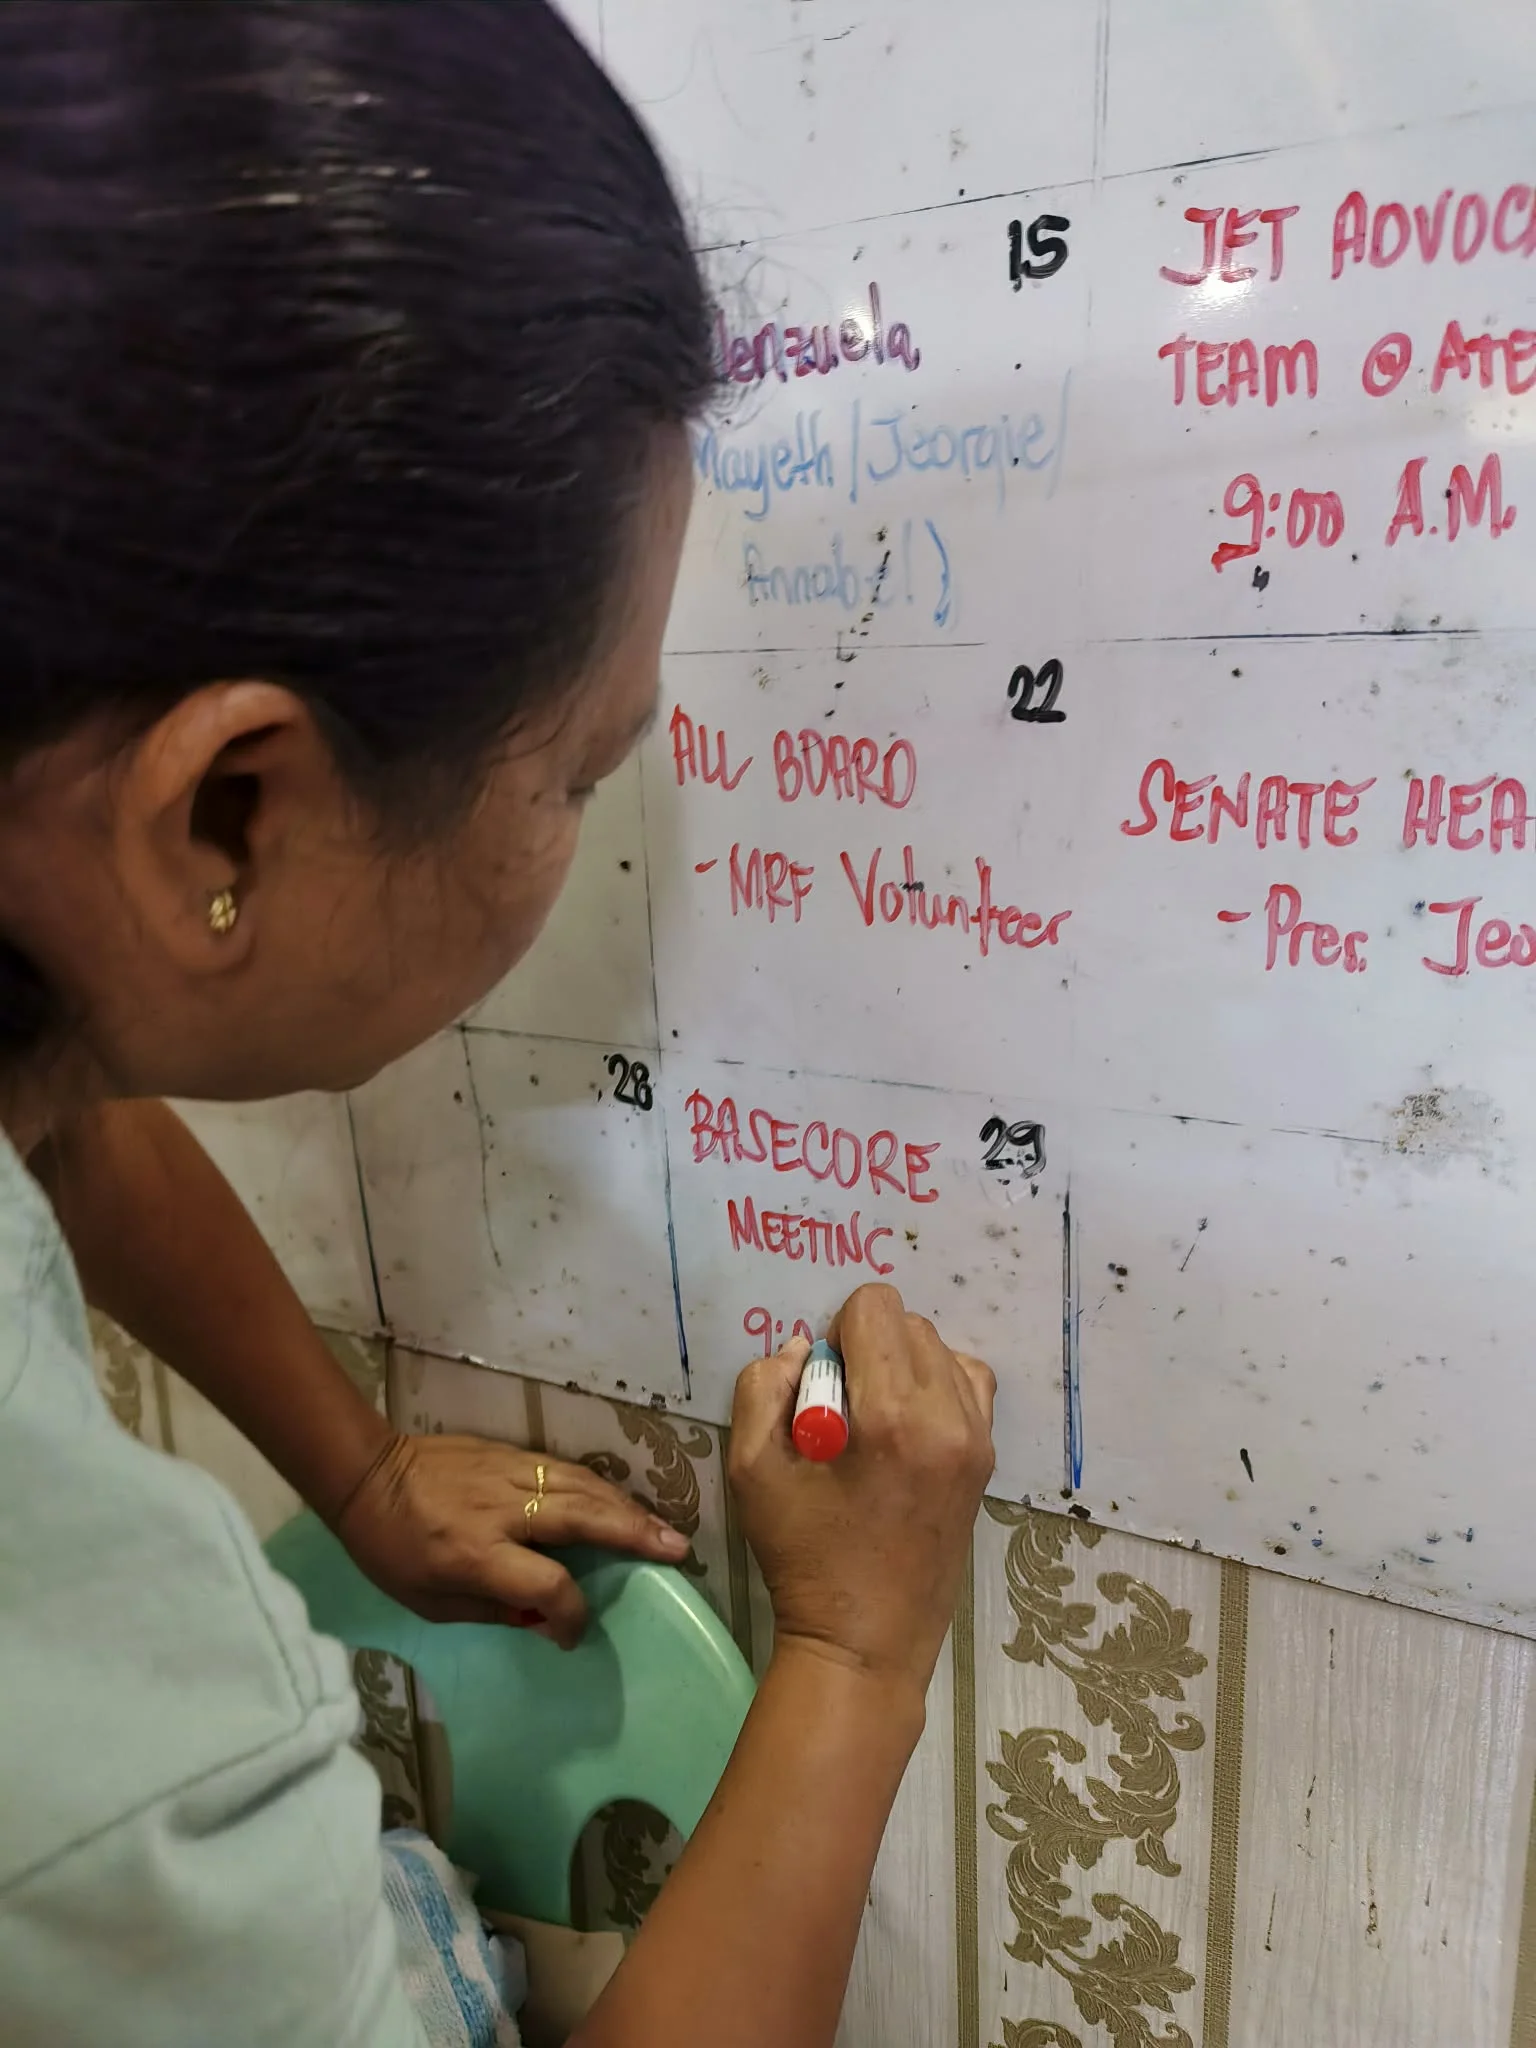 15
Mayeth/Jeorgie/
Annabel)
JET ADVOC
TEAM @ ATE
9:00 A.M.
22
ALL BOARD
- MRF Volunteer
SENATE HEA
- Pres. Jeo
28
29
BASECORE
MEETING
9:0